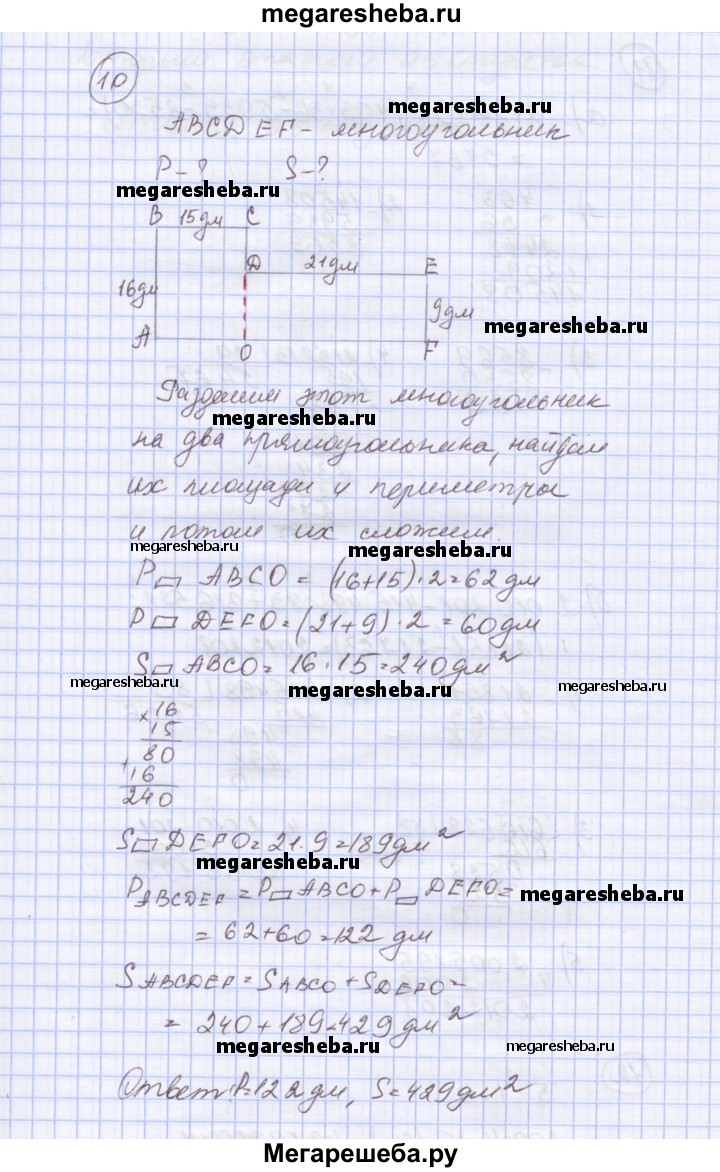 megaresheba.ru
10
megaresheba.ru
ABCDEF - многоугольник
P - ? S - ?
megaresheba.ru
B 15дм C
D 21дм E
16дм
9дм
megaresheba.ru
A
O F
Разделим этот многоугольник
megaresheba.ru
на два прямоугольника, найдём
их площади и периметры
и потом их сложим.
megaresheba.ru
megaresheba.ru
P▭ ABCO = (16+15)·2=62 дм
P▭ DEFO=(21+9)·2=60дм
megaresheba.ru
S▭ ABCO= 16·15=240дм²
megaresheba.ru
megaresheba.ru
megaresheba.ru
×16
15
+80
16
240
S▭DEFO=21·9=189дм²
megaresheba.ru
P ABCDEF = P▭ABCO+P▭DEFO=
megaresheba.ru
= 62+60=122 дм
S ABCDEF = S ABCO + S DEFO =
= 240+189=429 дм²
megaresheba.ru
megaresheba.ru
Ответ: P=122дм, S=429дм²
megaresheba.ru
Мегарешеба.ру